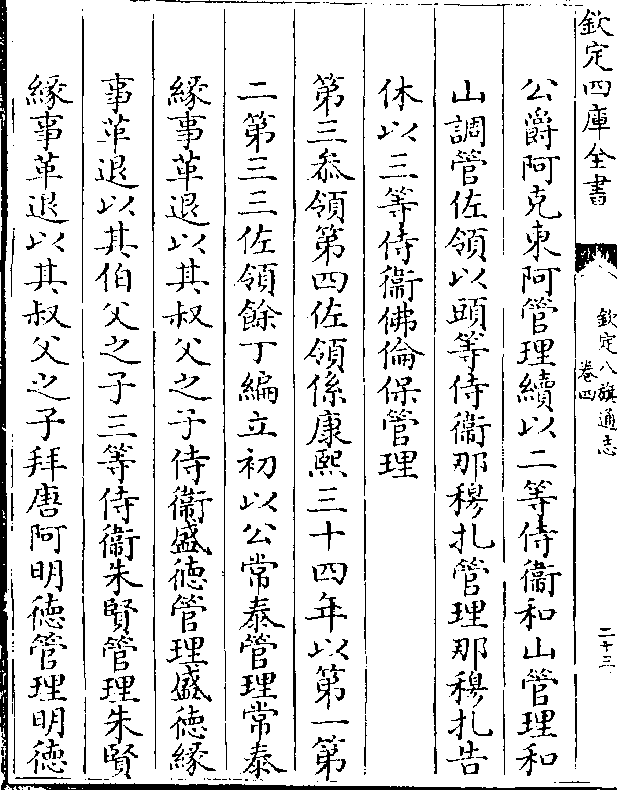 欽定四庫全書
欽定八旗通志
卷四
二十三
公爵阿克東阿管理續以二等侍衞和山管理和
山調管佐領以頭等侍衞那穆扎管理那穆扎告
休以三等侍衞佛倫保管理
第三叅領第四佐領係康熙三十四年以第一第
二第三三佐領餘丁編立初以公常泰管理常泰
緣事革退以其叔父之子侍衞盛德管理盛德緣
事革退以其伯父之子三等侍衞朱賢管理朱賢
緣事革退以其叔父之子拜唐阿明德管理明德